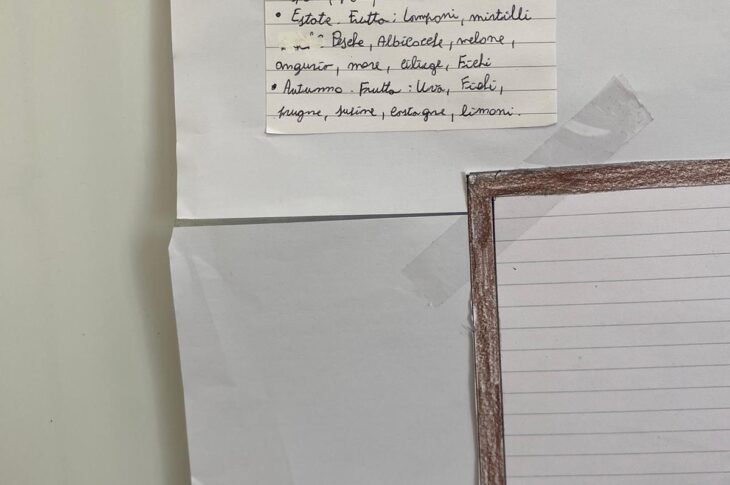 • Estate. Frutta: Lamponi, mirtilli
Pesche, Albicocche, melone,
anguria, more, ciliege, Fichi
• Autunno. Frutta: Uva, Fichi,
prugne, susine, castagne, limoni.